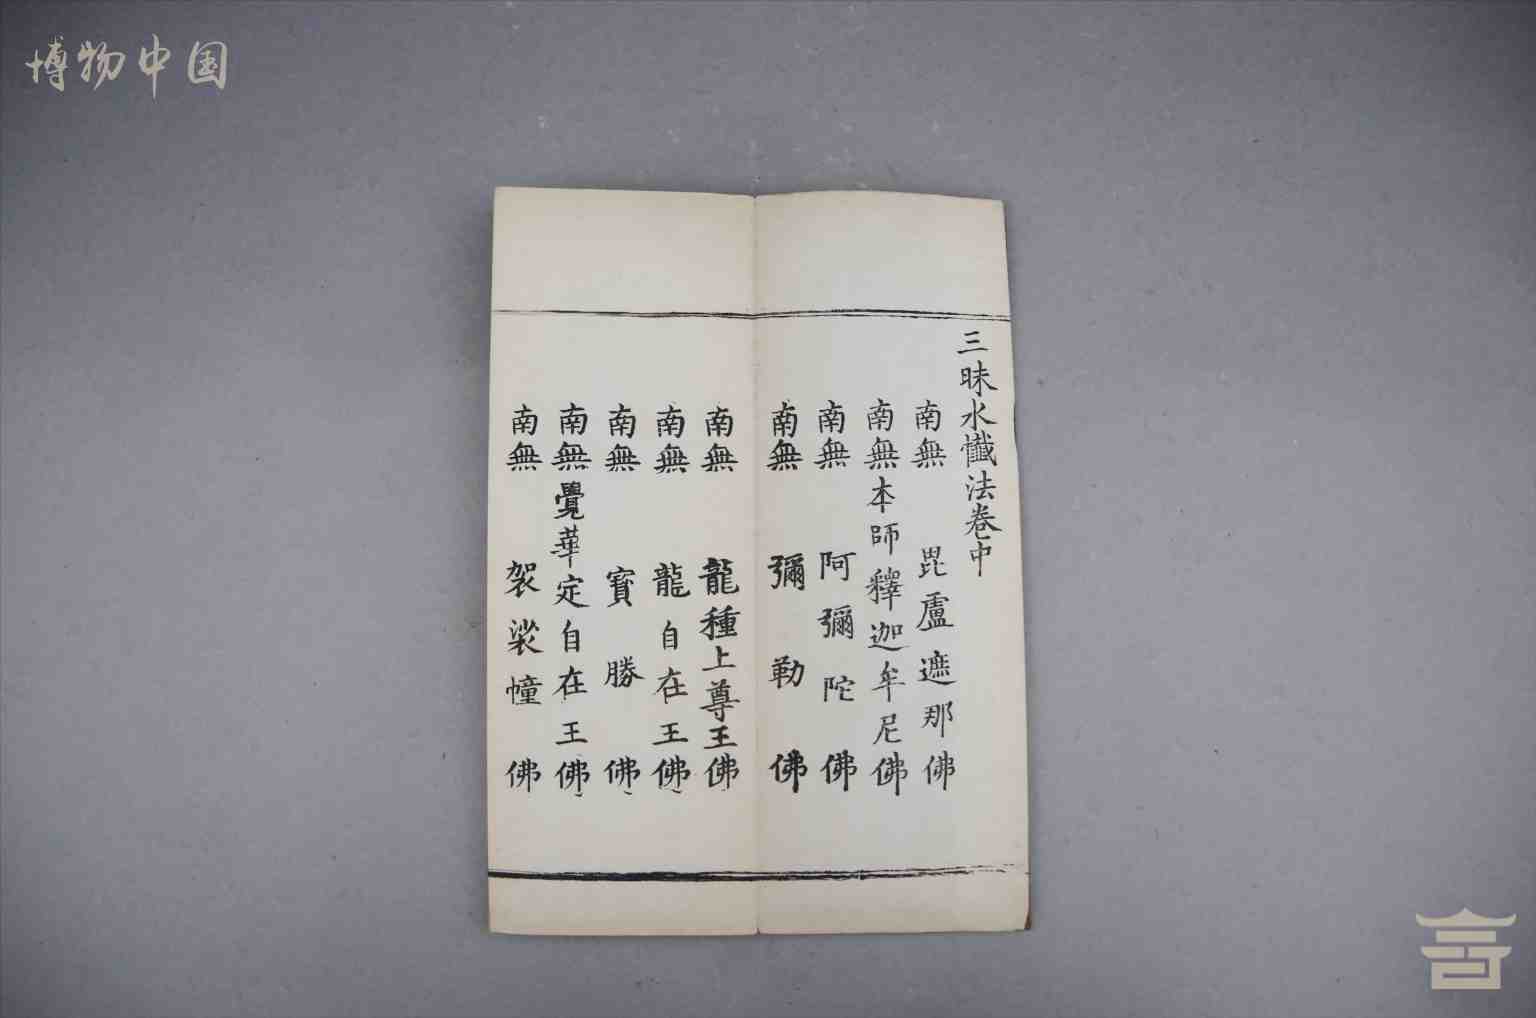 博物中国
三昧水懺法卷中
南無毘盧遮那佛
南無本師釋迦牟尼佛
南無阿彌陀佛
南無彌勒佛
南無龍種上尊王佛
南無龍自在王佛
南無寶勝佛
南無覺華定自在王佛
南無袈裟幢佛